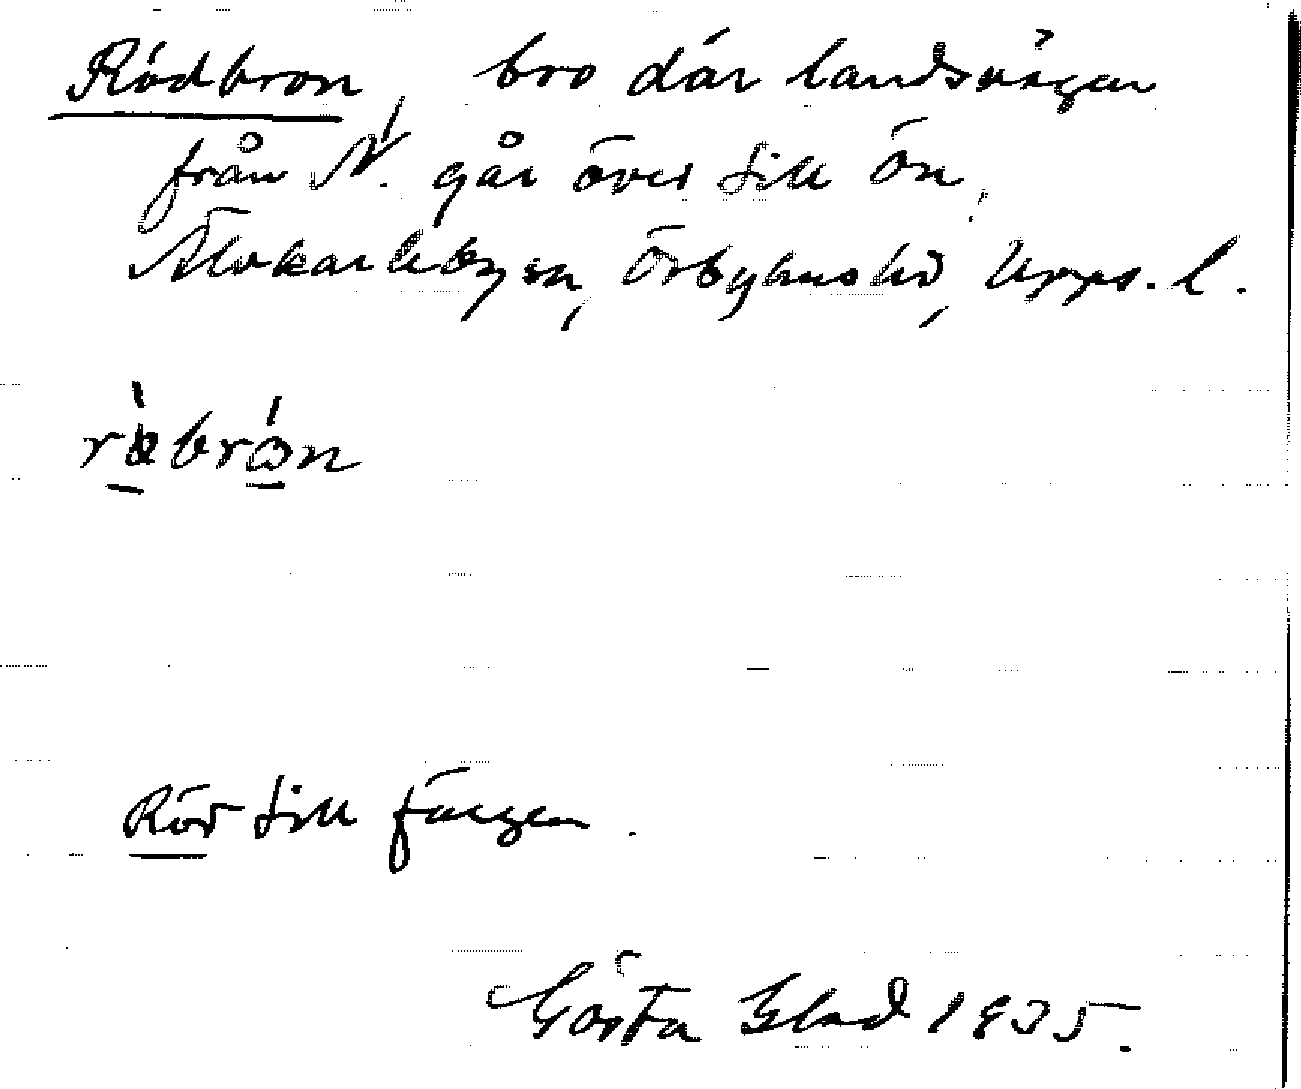 Rödbron, bro där landsvägen
från N. går över till ön,
Älvkarleby sn, Örbyhus hd, Upps. l.
Röd till färgen.
Gösta Blad 1935.